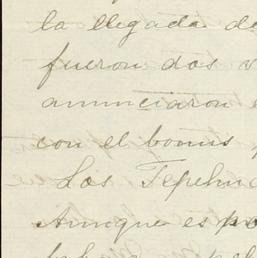 la llegada de
fueron dos v
anunciaron
con el bonus
Los Tepehu
Aunque es